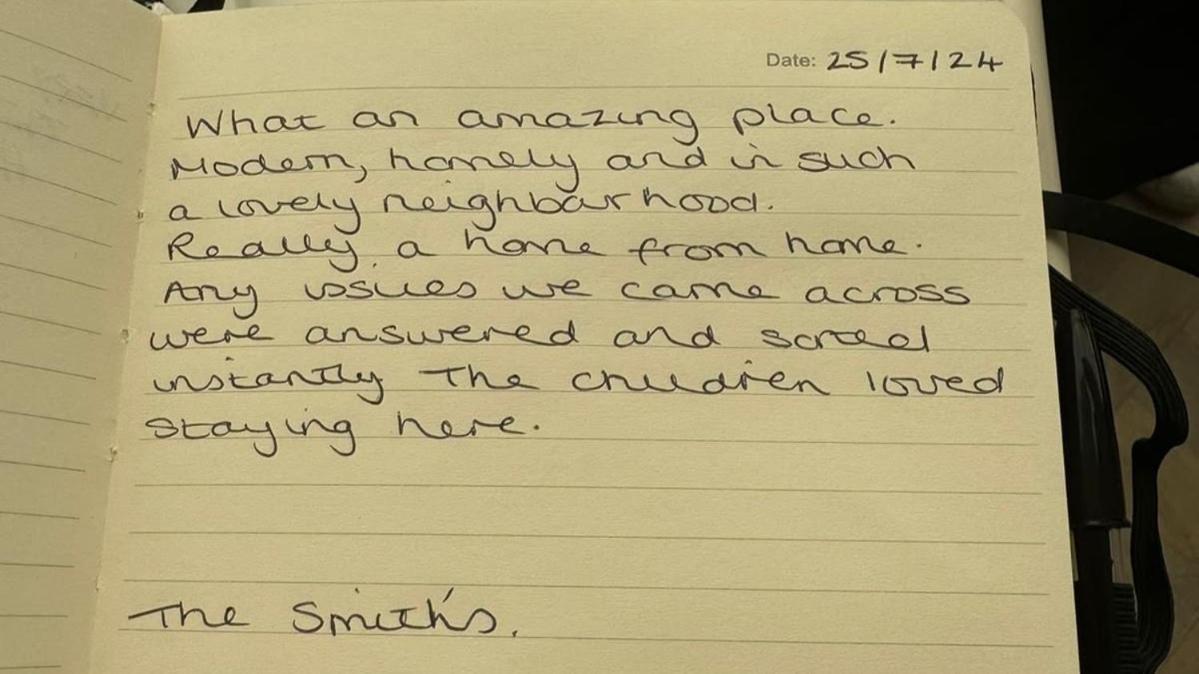 Date: 25/7/24
What an amazing place.
Modern, homely and in such
a lovely neighbourhood.
Really a home from home.
Any issues we came across
were answered and sorted
instantly The children loved
staying here.
The Smith's.